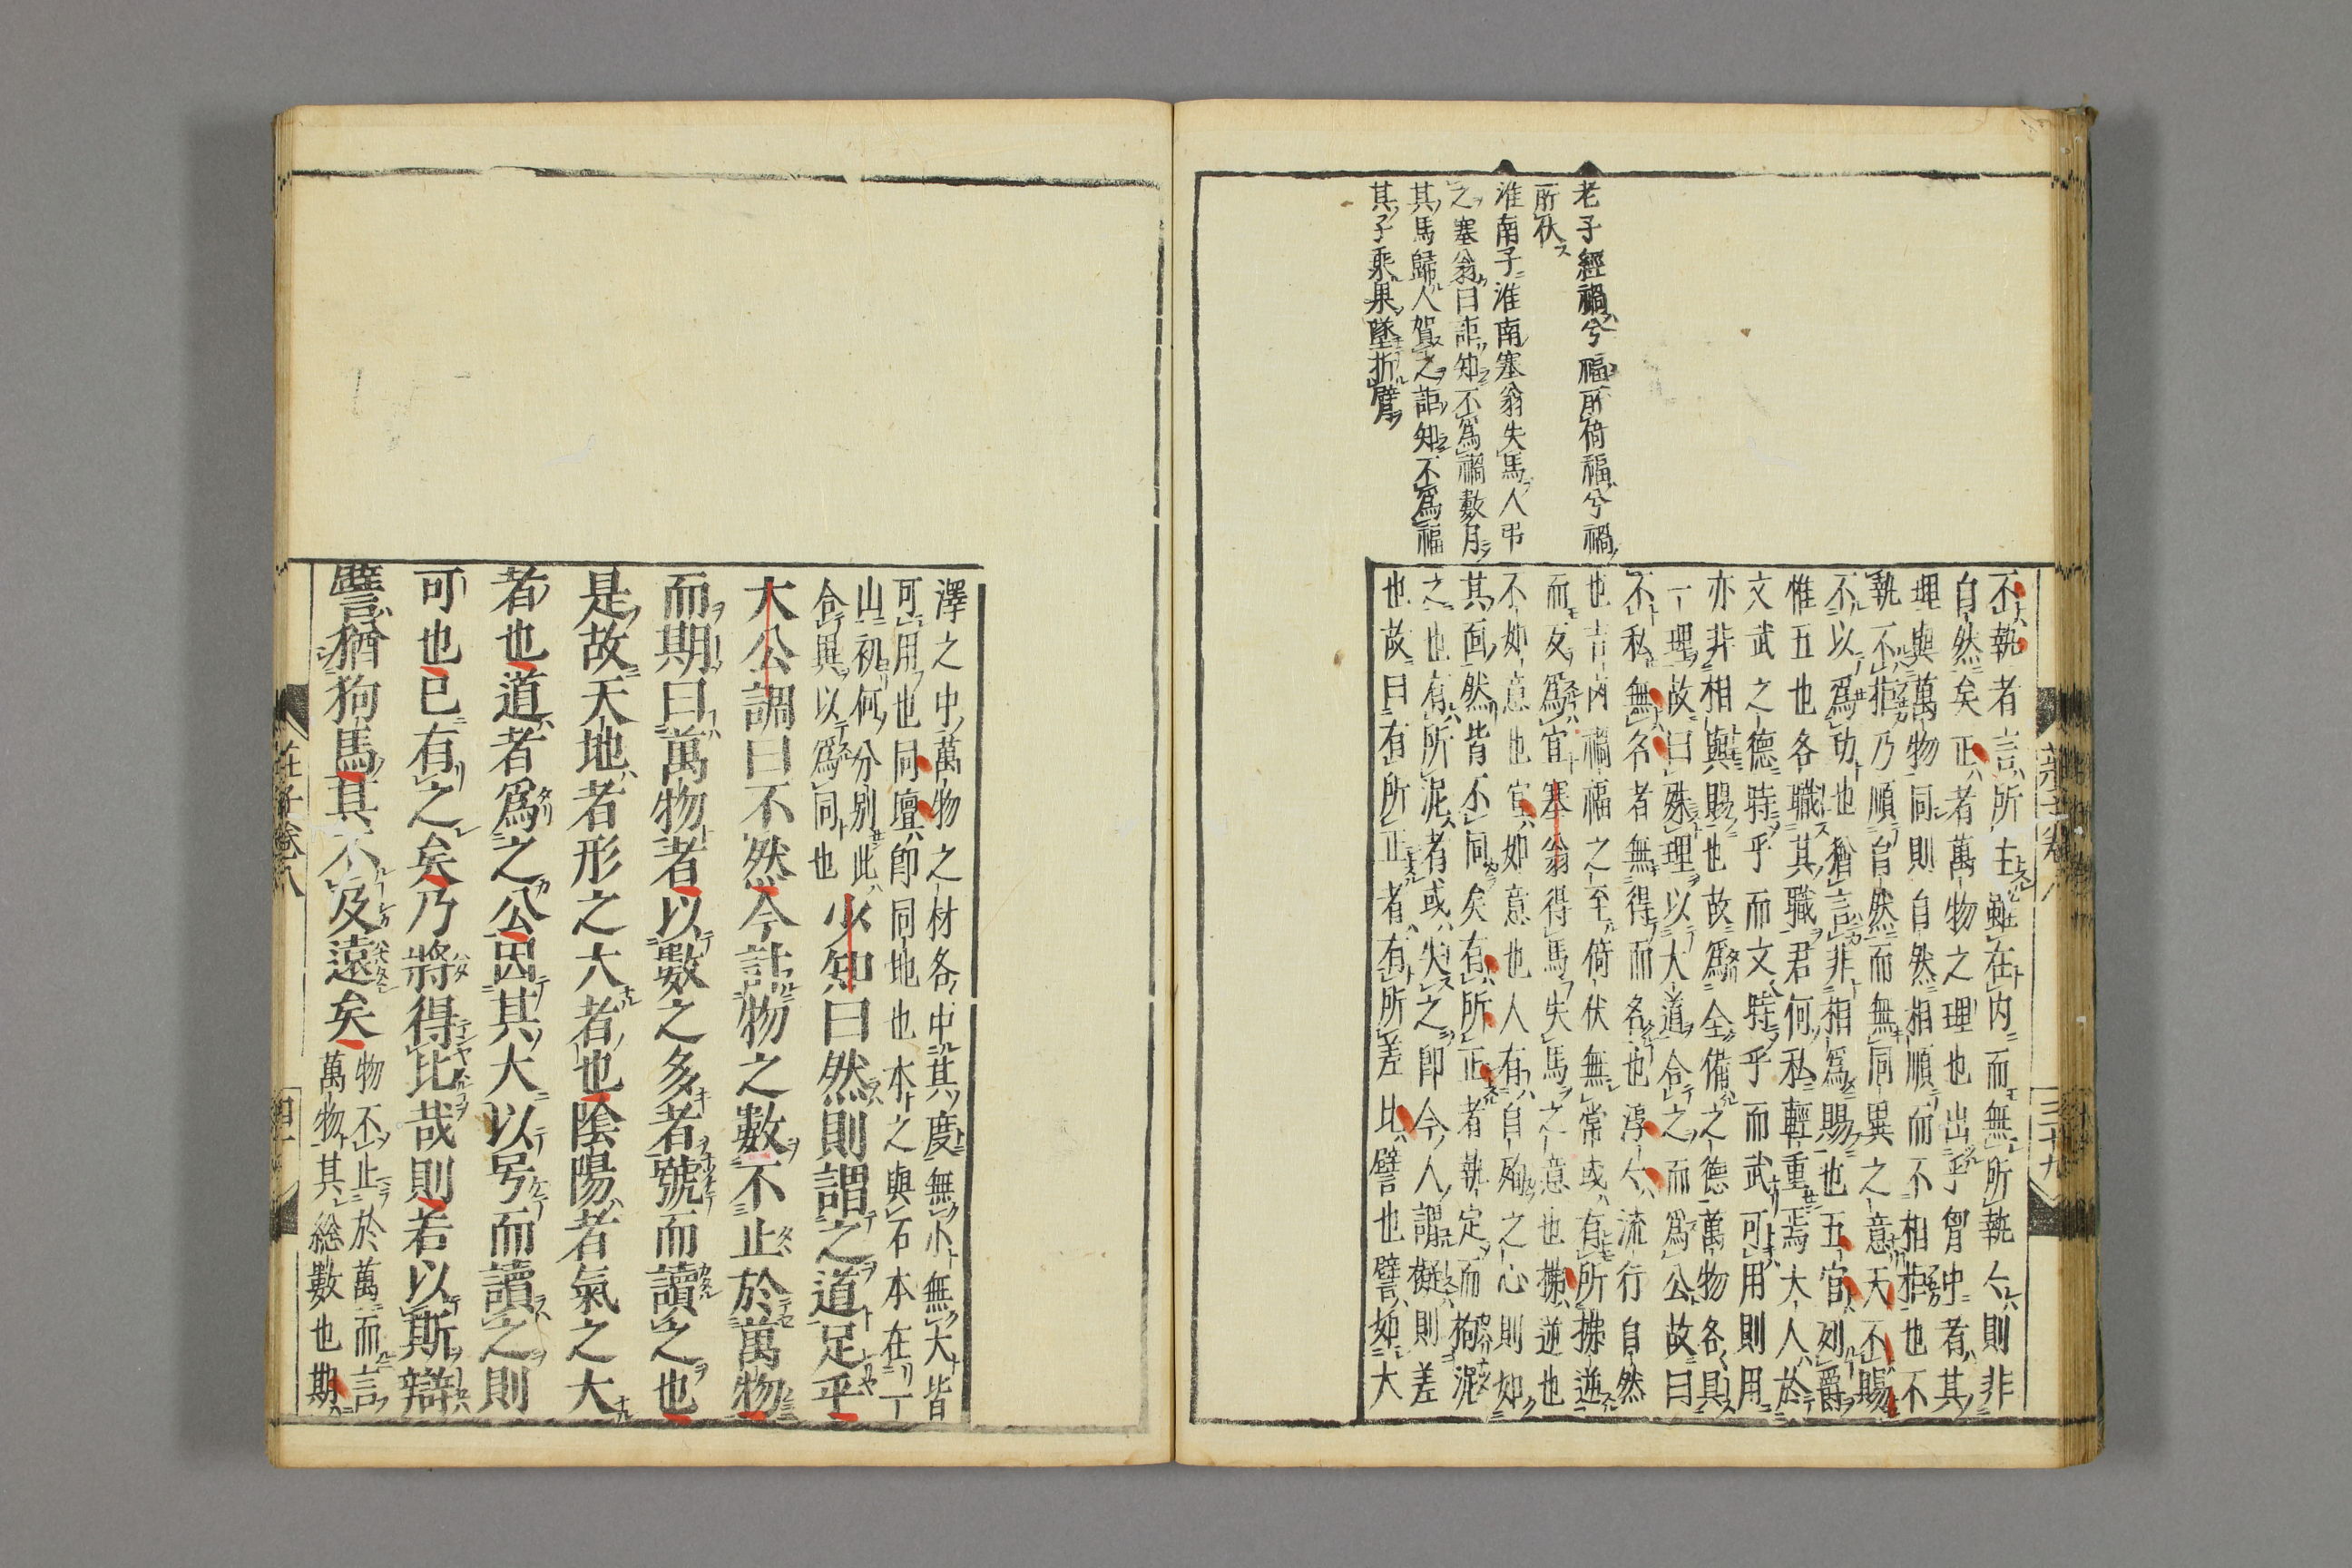 老子經禍兮福所倚福兮禍
所伏
淮南子淮南塞翁失馬人弔
之塞翁曰詎知不爲禍數月
其馬歸人賀之詎知不爲福
其子乘果墜折臂
不執者言所主雖在内而無所執亽則非
自然矣正者萬物之理也出乎胷中者其
理與萬物同則自然相順而不相拒也不
執不拒乃順自然而無同異之意天不賜
不以爲功也猶言非相爲賜也五官列爵
惟五也各職其職君何私輕重焉大人於
文武之德時乎而文時乎而武可用則用
亦非相與賜也故爲全備之德萬物各具
一理故曰殊理以大道合之而爲公故曰
不私無名者無得而名也淳亽流行自然
也吉凶禍福之至倚伏無常或有所拂逆
而反爲宜塞翁得馬失馬之意也拂逆也
不如意也宜如意也人有自殉之心則如
其面然皆不同矣有所正者執定而拘泥
之也有所泥者或失之即今人謂擬則差
也故曰有所正者有所差比譬也譬如大
莊子卷八
三十九
澤之中萬物之材各中其度無小無大皆
可用也同壇即同地也木之與石本在一
山初何分別此
合異以爲同也
少知曰然則謂之道足乎
大公調曰不然今計物之數不止於萬物
而期曰萬物者以數之多者號而讀之也
是故天地者形之大者也陰陽者氣之大
者也道者爲之公因其大以号而讀之則
可也已有之矣乃將得比哉則若以斯辯
譬猶狗馬其不及遠矣
物不止於萬而言
萬物其総數也期
莊子卷八
四十